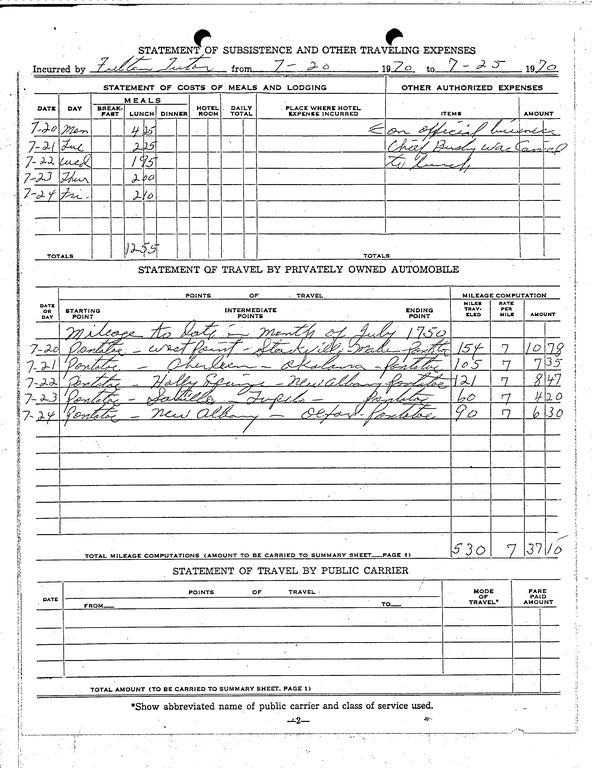 STATEMENT OF SUBSISTENCE AND OTHER TRAVELING EXPENSES
Incurred by Fulton Tutor from 7-20 1970, to 7-25 1970
STATEMENT OF COSTS OF MEALS AND LODGING OTHER AUTHORIZED EXPENSES
MEALS
DATE DAY BREAK-FAST LUNCH DINNER HOTEL ROOM DAILY TOTAL PLACE WHERE HOTEL EXPENSE INCURRED ITEMS AMOUNT
7-20 Mon 4 25 on official business
7-21 Tue 2 25 Chief Busby was Carried
7-22 Wed 1 95 to lunch
7-23 Thur 2 00
7-24 Fri. 2 10
TOTALS 12 55 TOTALS
STATEMENT OF TRAVEL BY PRIVATELY OWNED AUTOMOBILE
DATE OR DAY POINTS OF TRAVEL MILEAGE COMPUTATION
STARTING POINT INTERMEDIATE POINTS ENDING POINT MILES TRAV-ELED RATE PER MILE AMOUNT
Mileage to Date in month of July 1750
7-20 Pontotoc - West Point - Starkville - - Pontotoc 154 7 10 78
7-21 Pontotoc - Aberdeen - Okolona - Pontotoc 105 7 7 35
7-22 Pontotoc - Holly Springs - New Albany Pontotoc 121 7 8 47
7-23 Pontotoc - Saltillo - Tupelo - Pontotoc 60 7 4 20
7-24 Pontotoc - New Albany - Oxford - Pontotoc 90 7 6 30
TOTAL MILEAGE COMPUTATIONS (AMOUNT TO BE CARRIED TO SUMMARY SHEET—PAGE 1) 530 7 37 10
STATEMENT OF TRAVEL BY PUBLIC CARRIER
DATE POINTS OF TRAVEL MODE OF TRAVEL* FARE PAID AMOUNT
FROM— TO—
TOTAL AMOUNT (TO BE CARRIED TO SUMMARY SHEET, PAGE 1)
*Show abbreviated name of public carrier and class of service used.
—2—